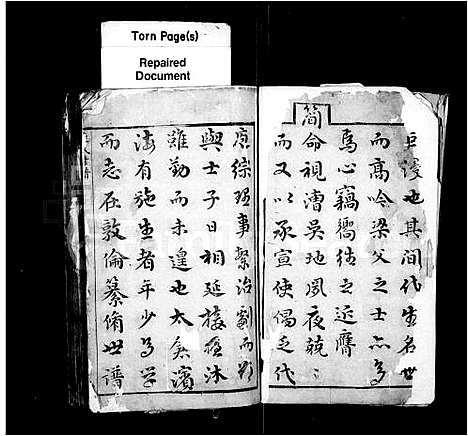 Torn Page(s)
Repaired
Document
也其間代生名世
而高吟梁父之士亦多
焉心竊嚮往之近膺
簡
命視漕吳地夙夜兢兢
而又以承宣使偈乏代
庶綜理事繁治劇而影
與士子日相延接癙沐
雖勤而未遑也太倉濱
海有施生者年少多學
而志在敦倫纂脩世譜